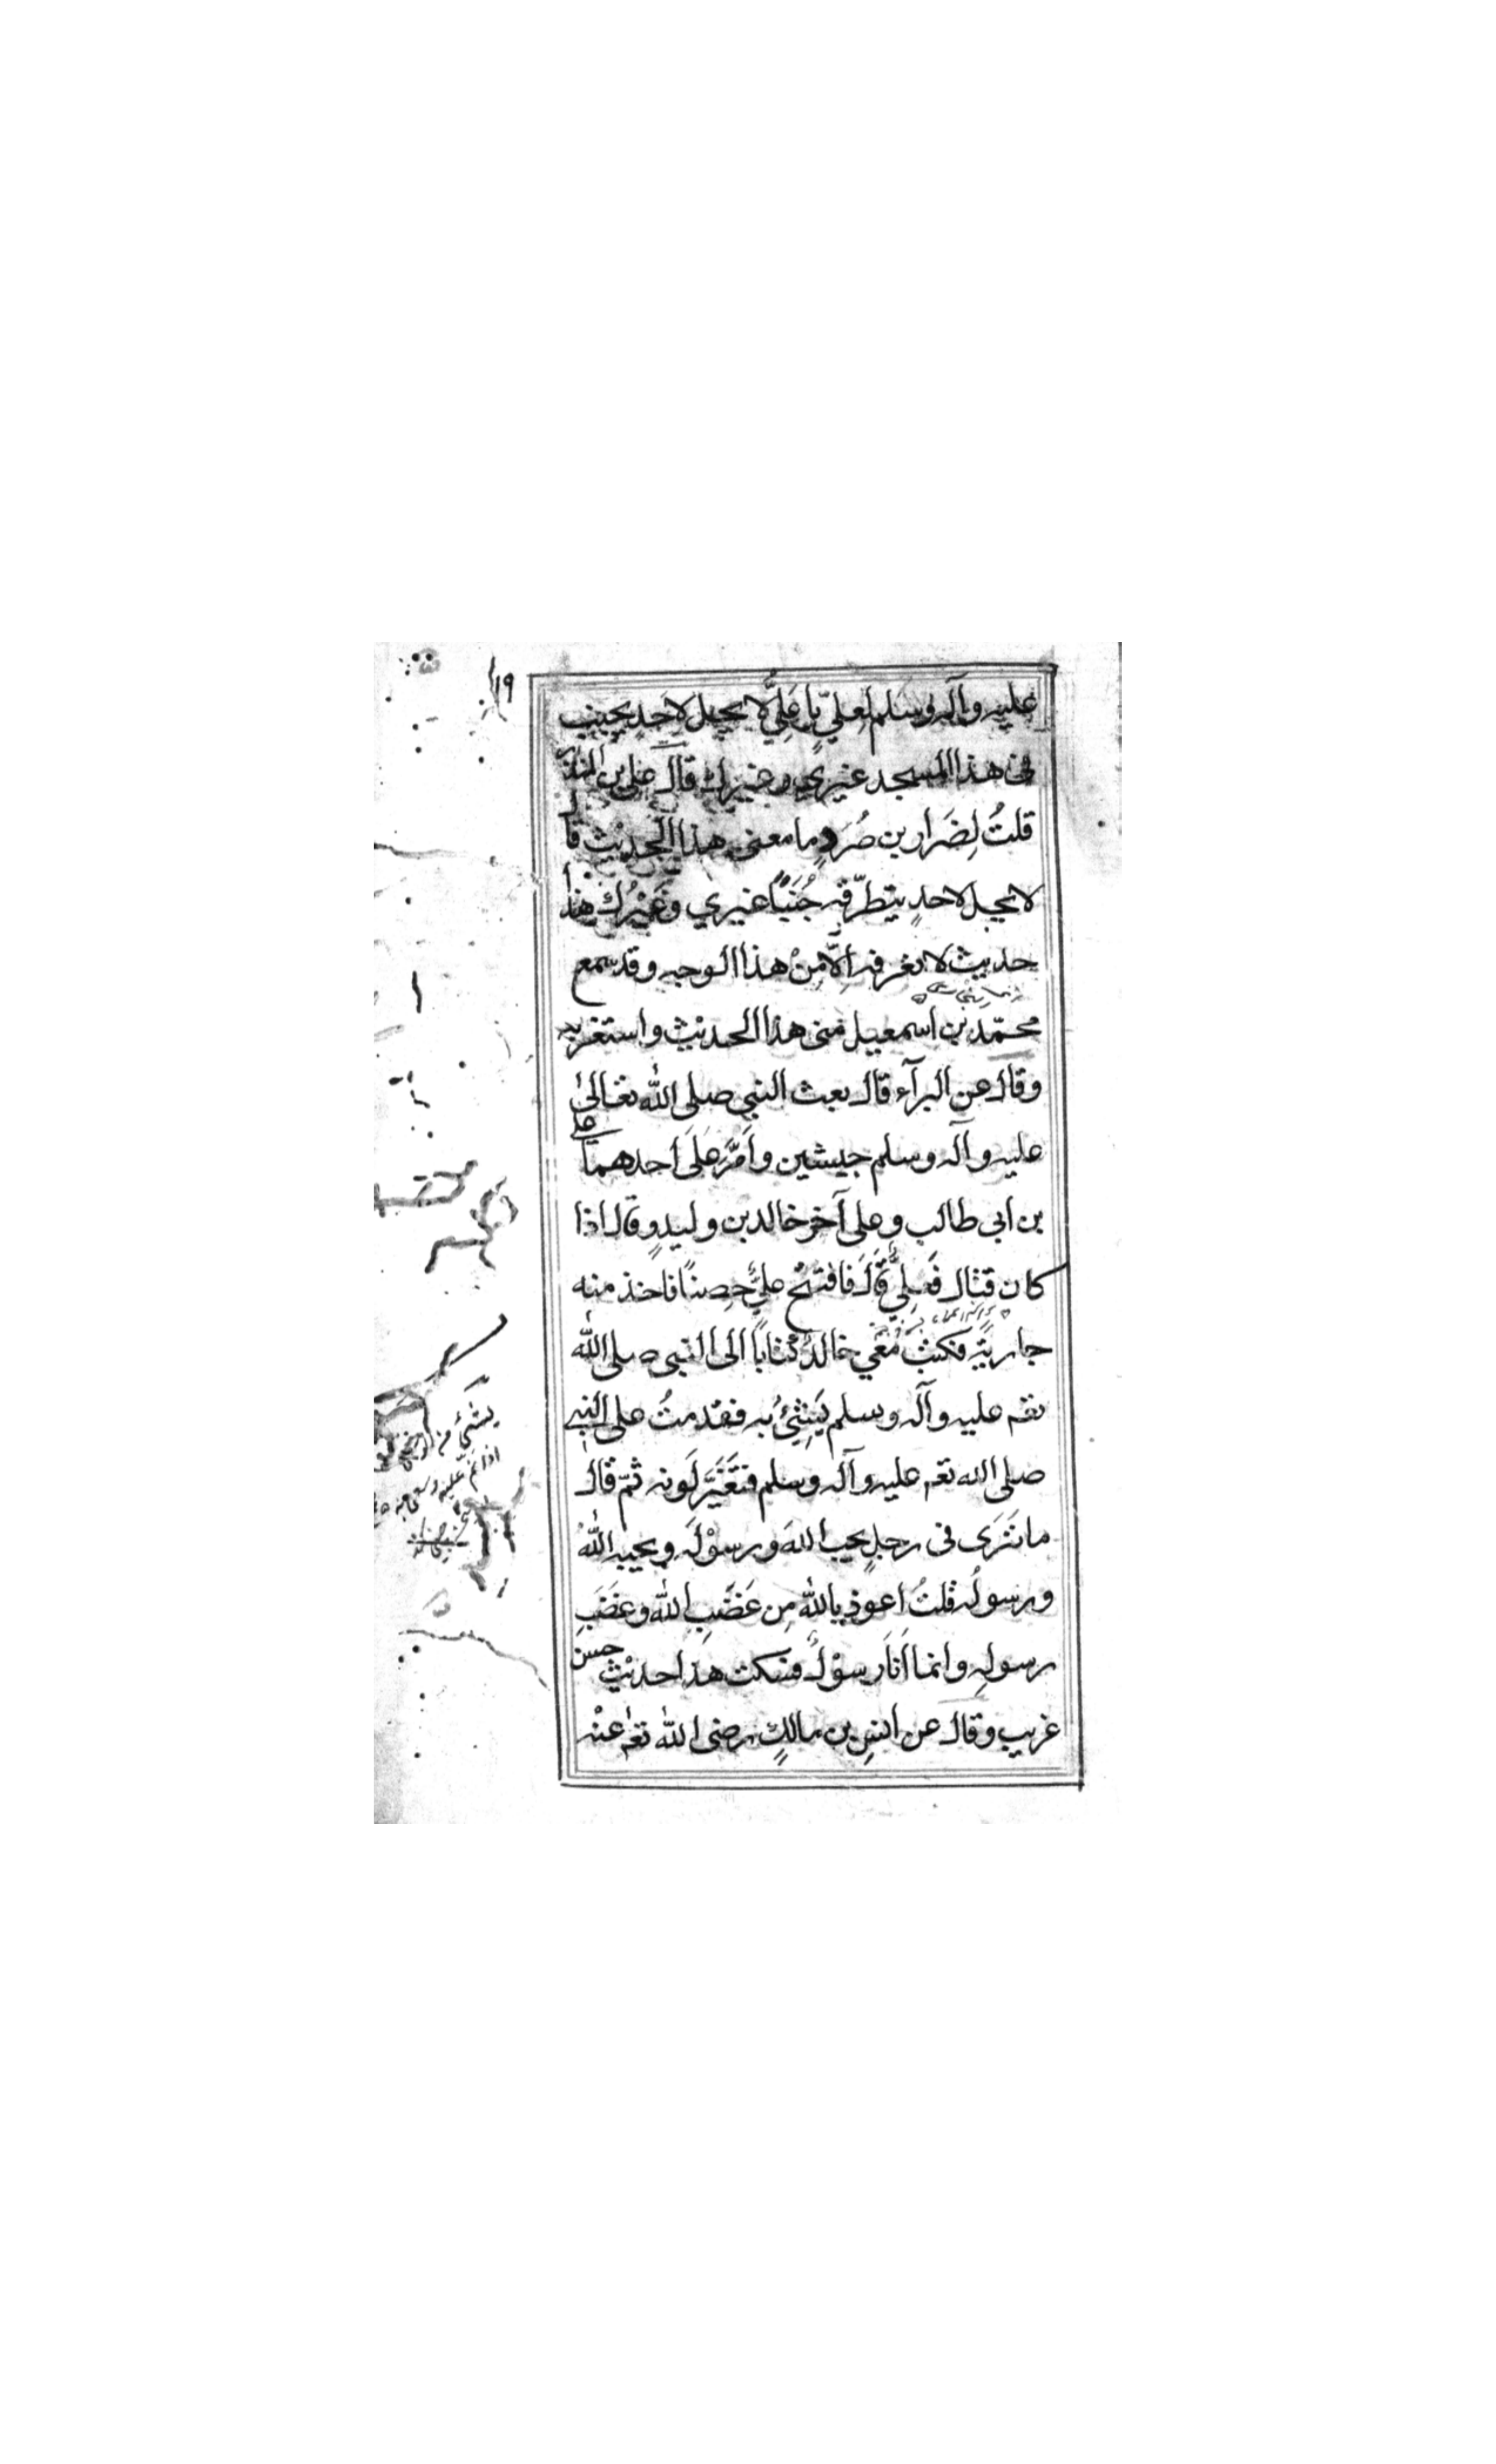 ١٩
عليه وآله وسلم لعليّ يا عَلِيُّ لا يحل لاحدٍ يجنب
فى هذا المسجد غيري وغيرك قال على بن المنذر
قلتُ لِضَرار بن صُرَدٍ ما معنى هذا الحديث قال
لا يحل لاحدٍ يتطرّقه جُنُبًا غيري وغَيْرُك هذا
حديث لا نعرفه اِلّا مِنْ هذا الوجه وقد سمع
محمّد بن اسمعيل منى هذا الحديث واستغربه
وقال عن البرآء قال بعث النبي صلى الله تعالىٰ
عليه وآله وسلم جيشين واَمَّرَ عَلَى احدهما علي
بن ابي طالب وعلى آخر خالد بن وليدٍ وقال اذا
كان قتال فَعَلِيٌّ قَالَ فافتتح عليٌّ حِصنًا فاخذ منه
جارية فكتب مَعِي خالدٌ كتابًا الى النبي صلى الله
تعم عليه وآله وسلم يَشِئُ به فقدمتُ على النبي
صلى الله تعم عليه وآله وسلم فتَغَيَّرَ لَونه ثمّ قال
ما تَرَى فى رجلٍ يحب اللهَ ورسوْلَه ويحبه اللهُ
ورسولُه قلتُ اعوذ بالله مِن غَضَبِ الله وغَضَبِ
رسولِه وانما اَنَا رَسوْلٌ فسكت هذا حديث حسن
غريب وقال عن انسِ بن مالكٍ رضى الله تعم عنْه